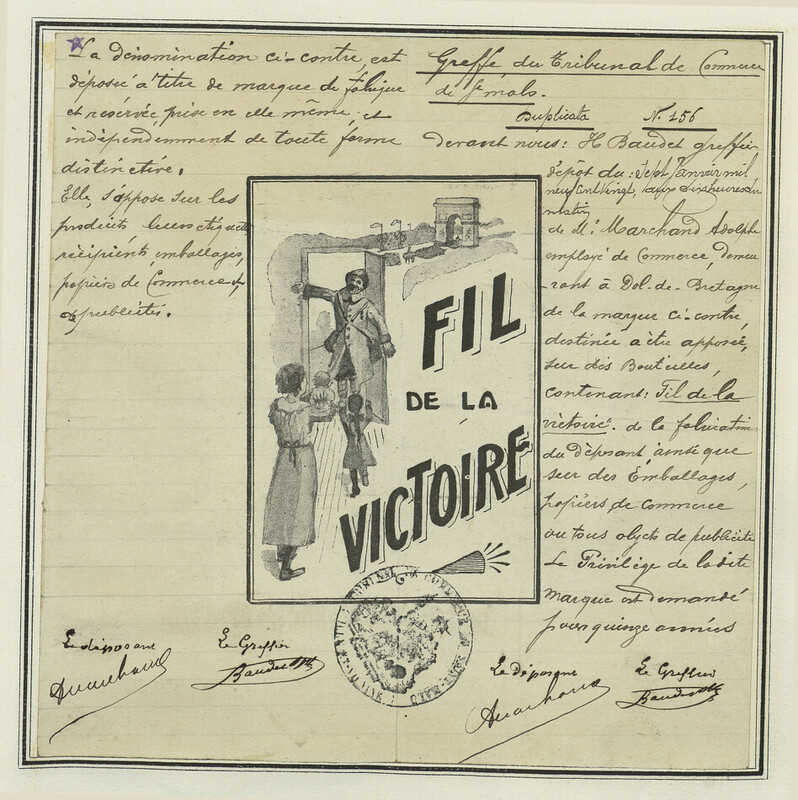 La dénomination ci-contre, est
déposée à titre de marque de fabrique
et réservée, prise en elle même, et
indépendemment de toute forme
distinctive.
Elle s'appose sur les
produits, leurs étiquettes
récipients, emballages,
papiers de Commerce et
publicités.
Greffe du Tribunal de Commerce
de St malo.
Duplicata N. 156
devant nous: H Baudet greffier
dépôt du: Sept Janvier mil
neuf cent vingt, heures du
matin
de Mr. Marchand Adolphe
employé de Commerce, demeu
-rant à Dol-de-Bretagne
de la marque ci-contre,
destinée à être apposée,
sur des Bouteilles,
contenant: Fil de la
victoire. de la fabrication
du déposant, ainsi que
sur des Emballages,
papiers de commerce
ou tous objets de publicité
Le Privilège de la dite
marque est demandé
pour quinze années
FIL
DE LA
VICTOIRE
Le déposant Le Greffier
Le déposant Le Greffier